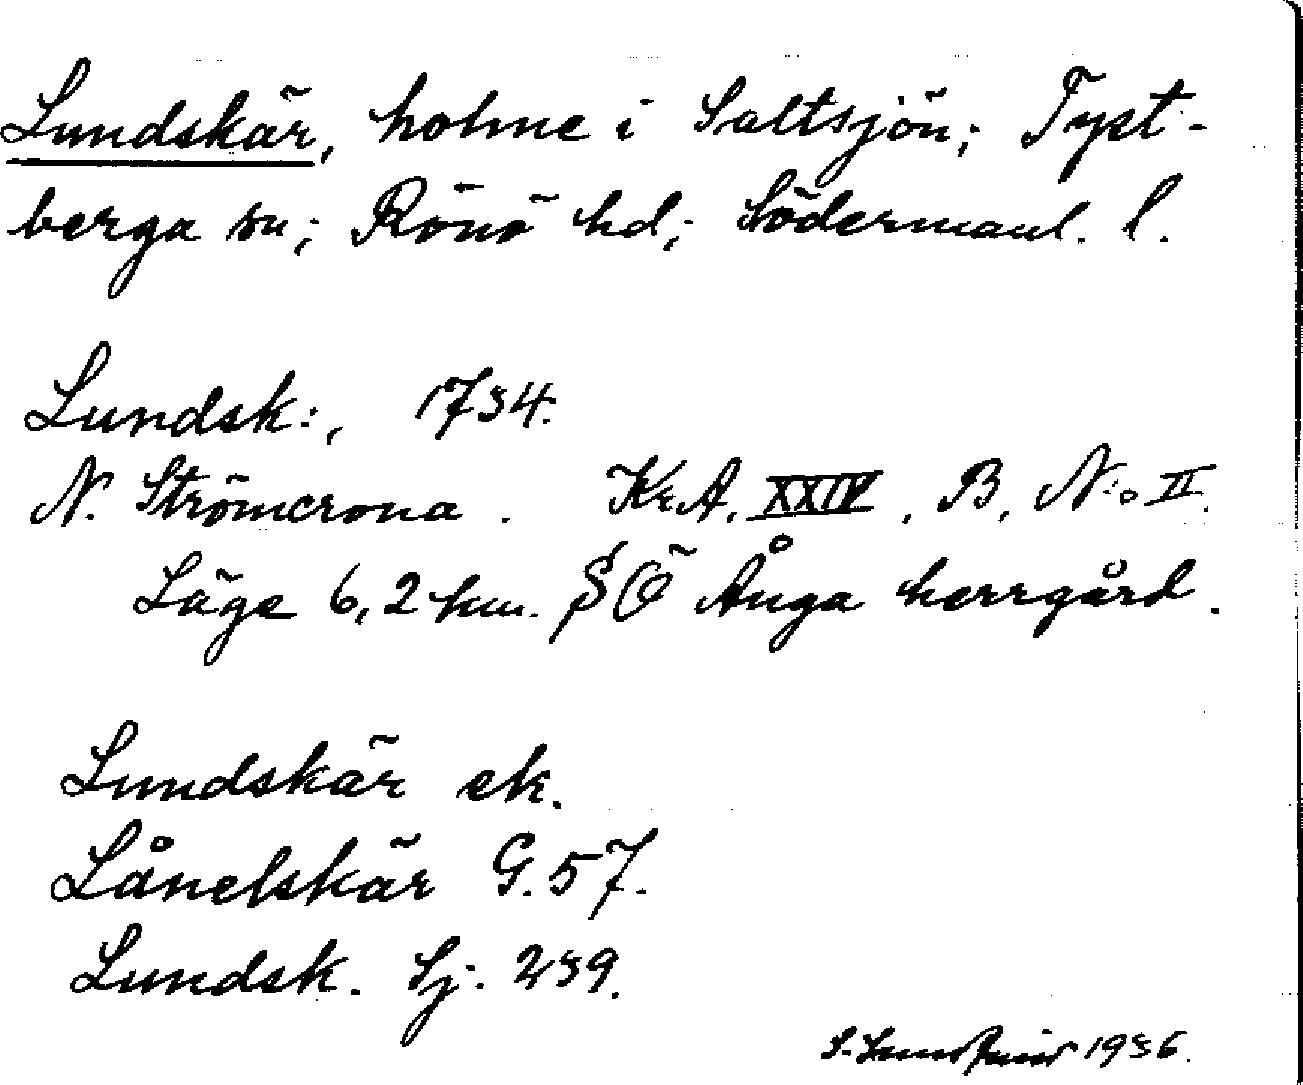 Lundskär, holme i Saltsjön; Tyst-
berga sn; Rönö hd; Södermanl. l.
Lundsk:, 1734.
N. Strömcrona. Kr.A. XXIV, B, N:o II.
Läge 6,2 km. SÖ Ånga herrgård.
Lundskär ek.
Lånelskär G. 57.
Lundsk. Sj. 239.
S. 1936.